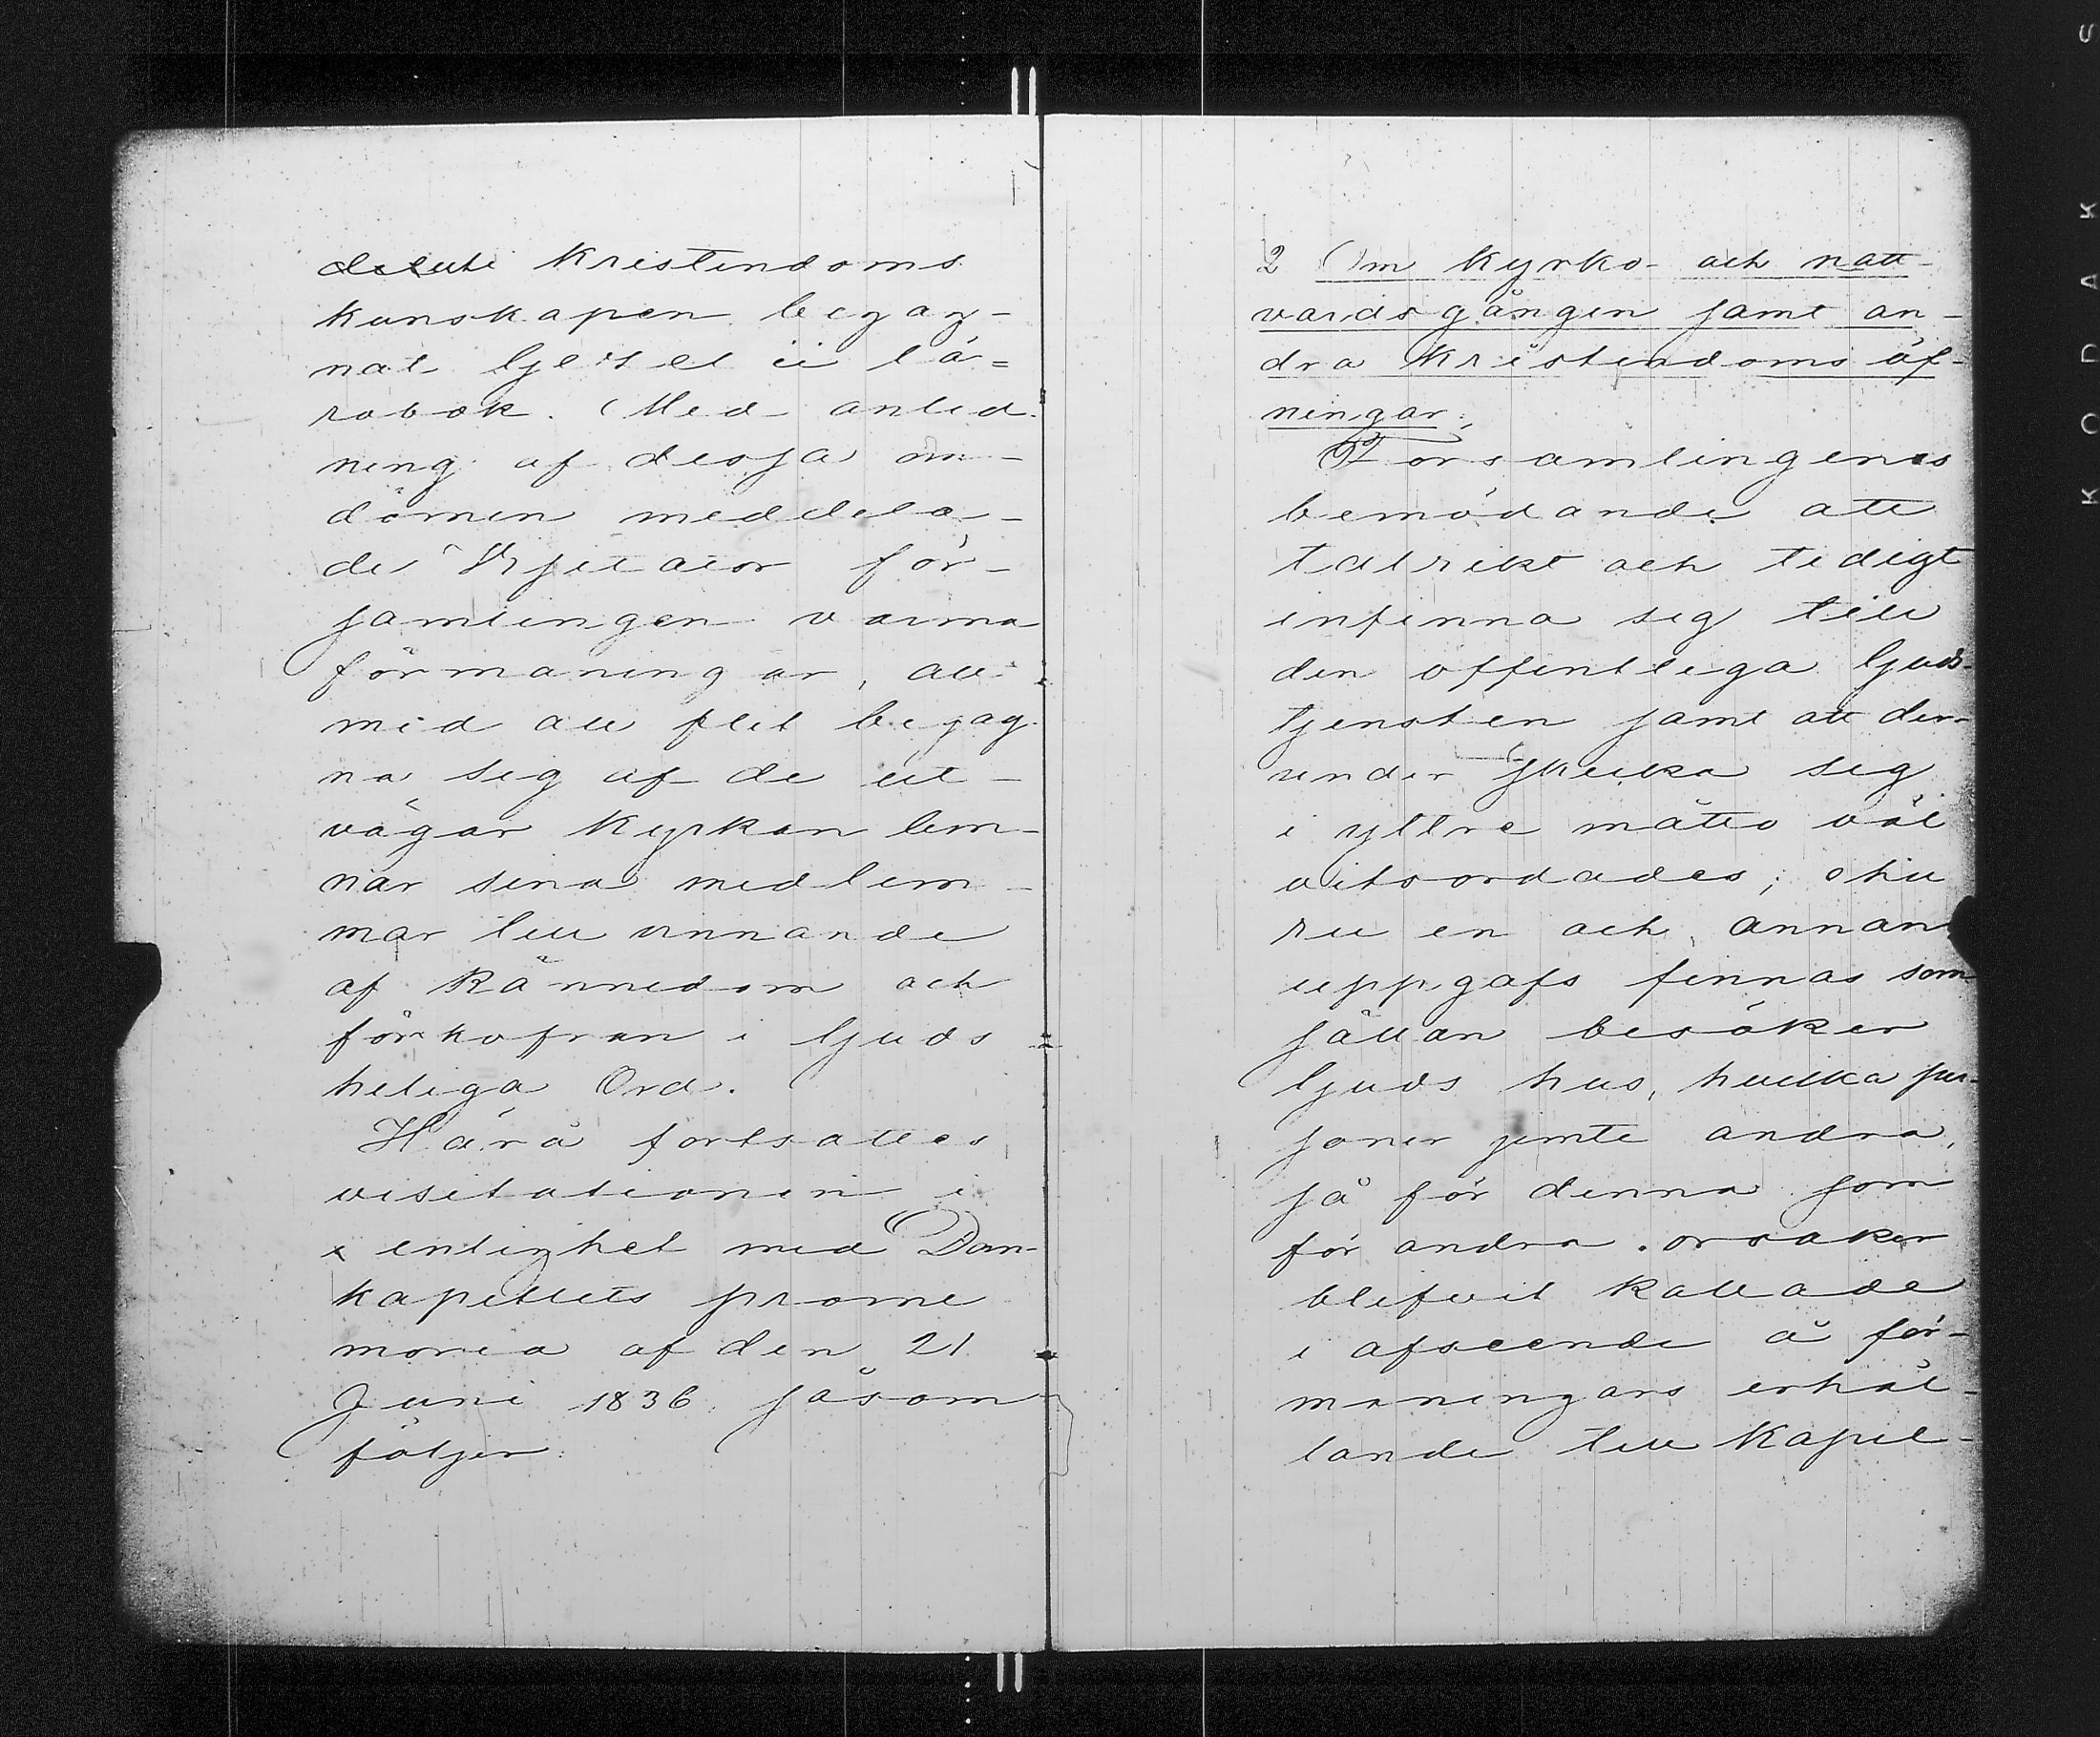 delute Kristendoms
kunskapen begag-
nat Gjersel ii lä-
robok. Med anled
ning af dessa om-
dömen meddela-
des Visitator för-
samlingen varma
förmaningar, att
med all flit begag
na sig af de ut-
vägar Kyrkan lem-
nar sina medlem-
mar till vinnande
af kännedom och
förkofran i Guds
heliga Ord.
Härå fortsattes
visitationen i
enlighet med Dom-
kapitlets prome
moria af den 21
Juni 1836, såsom
följer:
2 Om Kyrko- och natt-
vardsgången samt an-
dra Kristendomsöf-
ningar.
Församlingens
bemödande att
talrikt och tidigt
infinna sig till
den offentliga Guds-
tjensten samt att der-
under skicka sig
i yttre måtto väl
vitsordades; ehu
ru en och annan
uppgafs finnas som
sällan besöker
Guds hus, hvilka per-
soner jemte andra,
så för denna som
för andra orsaker
blifvit kallade
i afseende å för-
maningars erhål-
lande till Kapel-
KODAK S